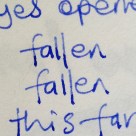 yes opene
fallen
fallen
this far